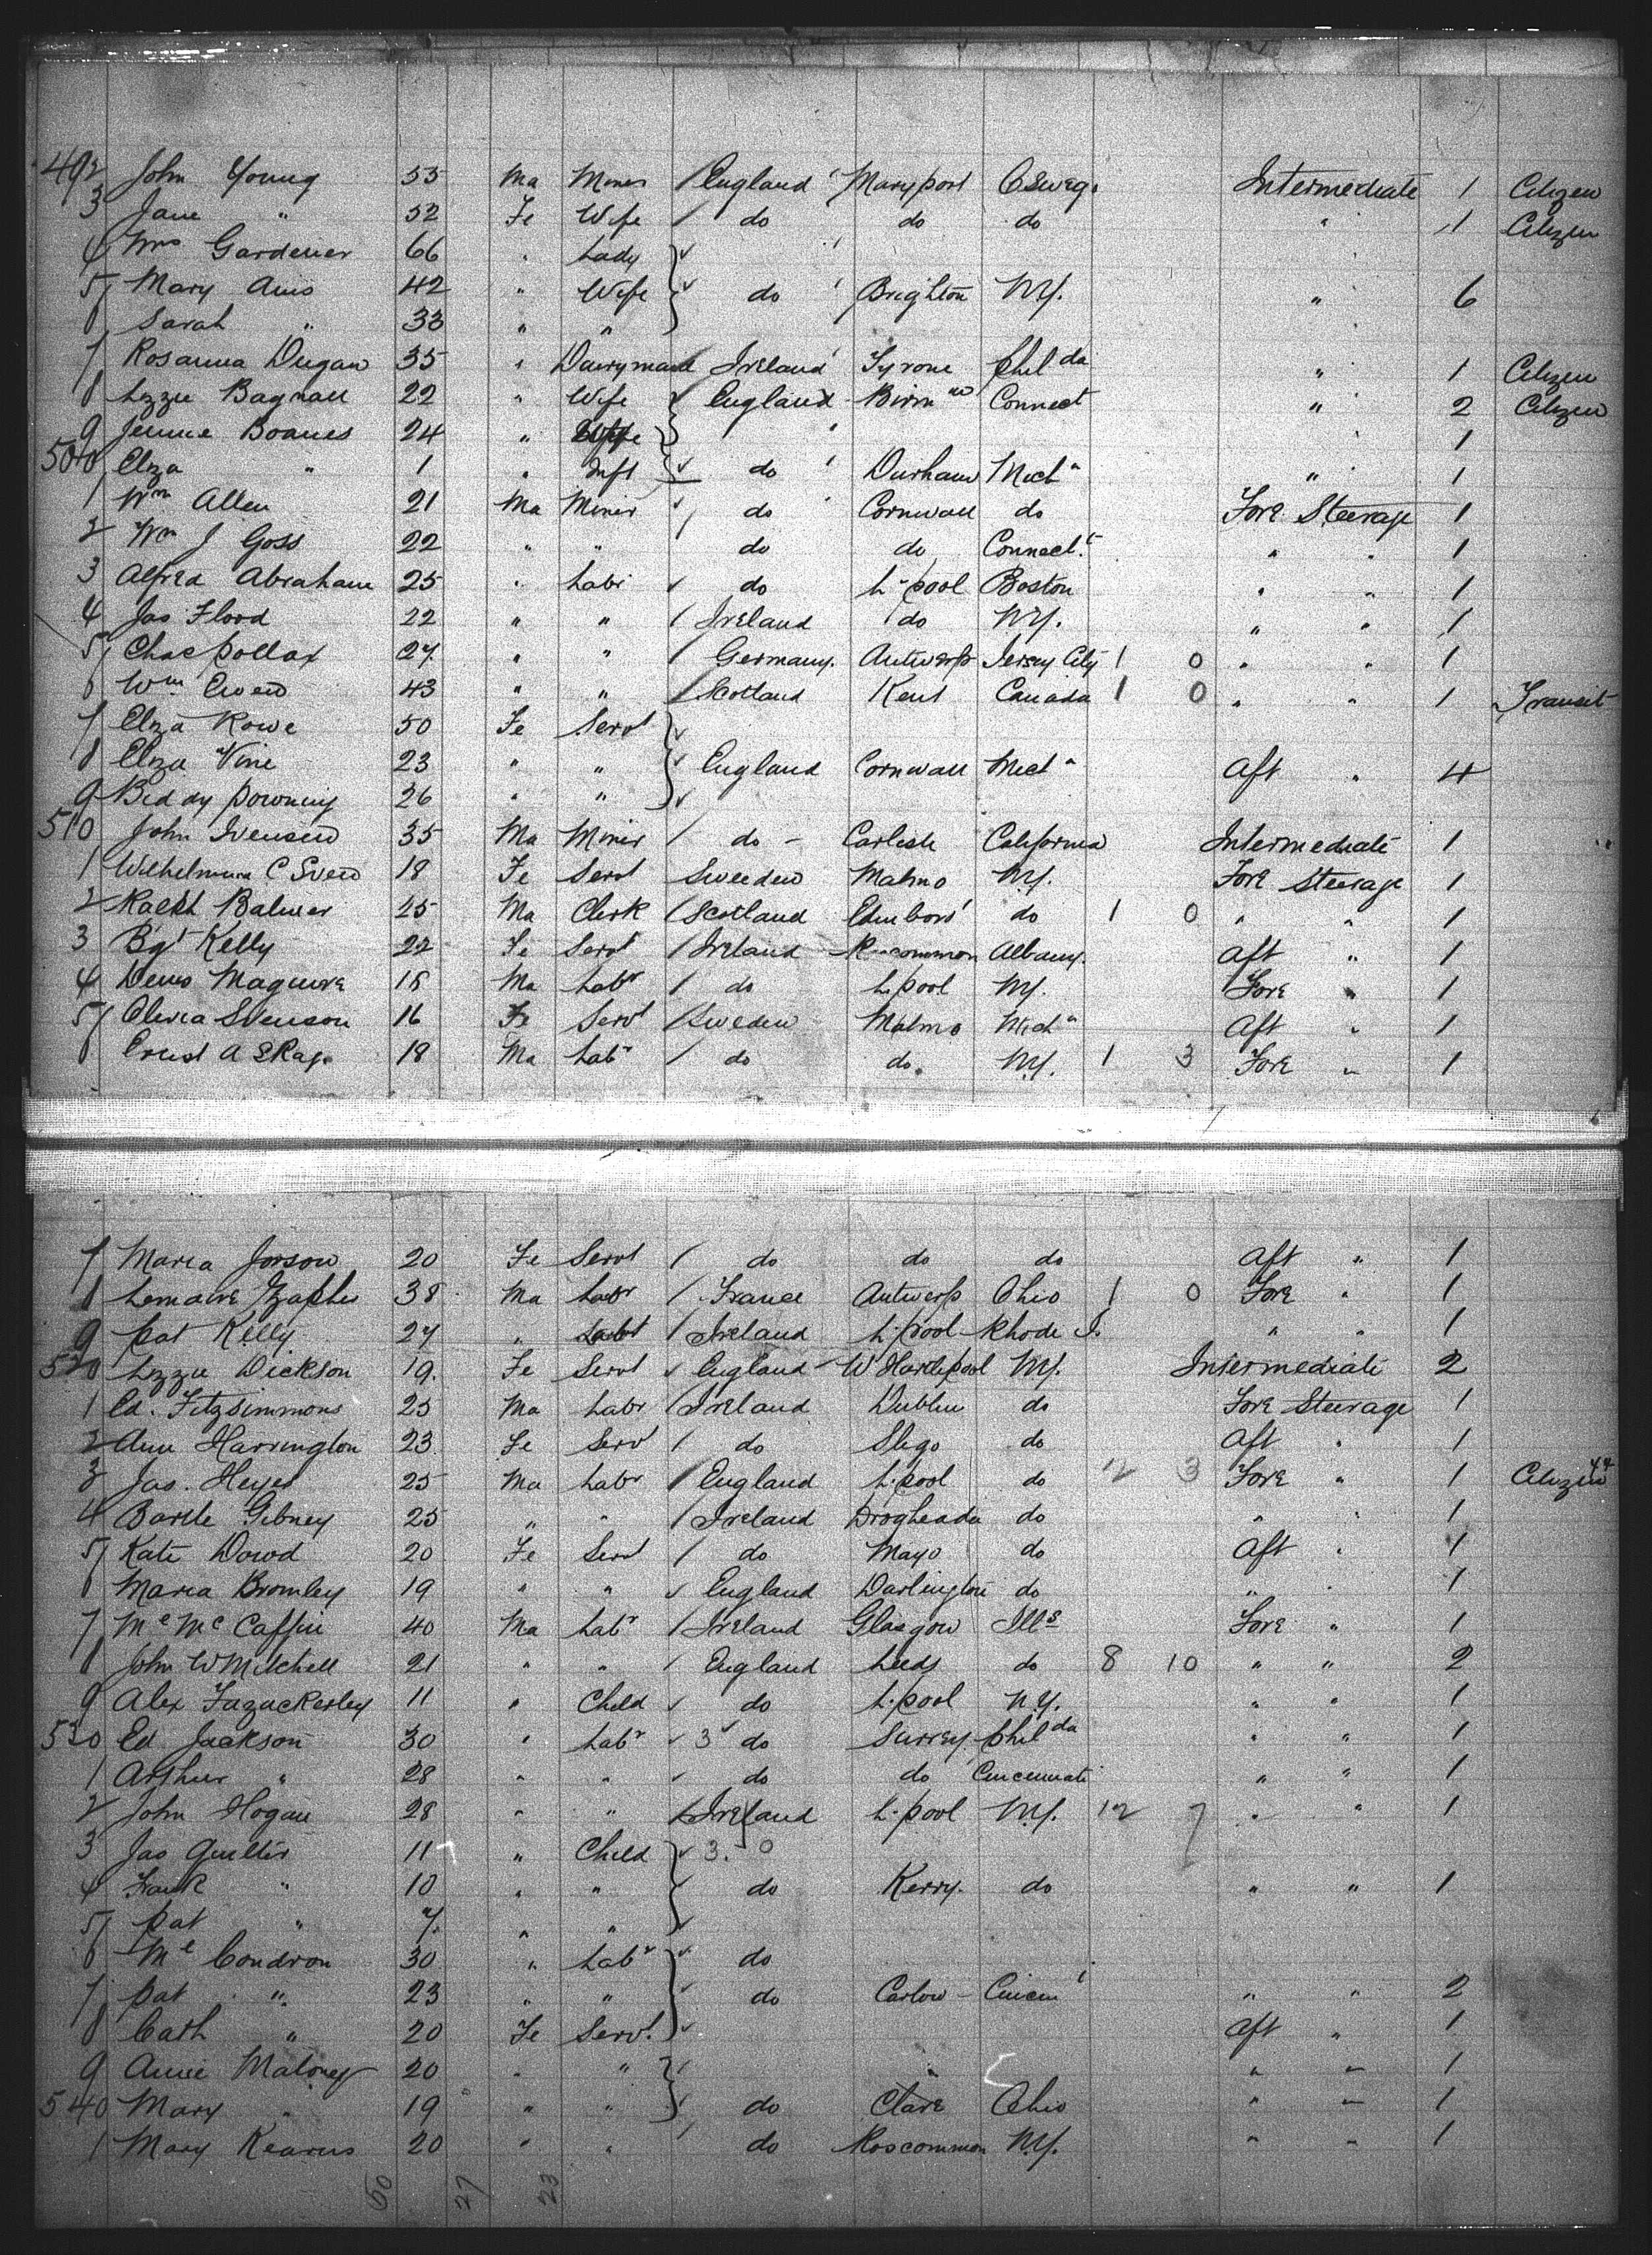 492 John Young 53 Ma Miner / England Maryport Oswego Intermediate 1 Citizen
3 Jane " 52 Fe Wife / do do do " 1 Citizen
4 Mrs Gardener 66 " Lady
5 Mary Avis 42 " Wife do Brighton N.Y. " 6
6 Sarah " 33 " "
7 Rosanna Dugan 35 " Dairymaid / Ireland Tyrone Philda " 1 Citizen
8 Lizzie Bagnall 22 " Wife England Birmm Connect " 2 Citizen
9 Jennie Boanes 24 " Wife 1
500 Eliza " 1 " Inft do Durham Michn " 1
1 Wm Allen 21 Ma Miner do Cornwall do Fore Steerage 1
2 Wm J Goss 22 " " do do Connect.t " " 1
3 Alfred Abraham 25 " Labr do L-pool Boston " " 1
4 Jas Flood 22 " " / Ireland do N.Y. " " 1
5 Chas Pollax 27 " " / Germany. Antwerp Jersey City 1 0 " " 1
6 Wm Ewen 43 " " / Scotland Kent Canada 1 0 " " 1 Transit
7 Eliza Rowe 50 Fe Servt
8 Eliza Vine 23 " " England Cornwall Michn Aft " 4
9 Biddy Downing 26 " "
510 John Ivensen 35 Ma Miner / do - Carlisle California Intermediate 1
1 Wilhelmina C Sven 18 Fe Servt Sweeden Malmo N.Y. Fore Steerage 1
2 Ralph Balmer 25 Ma Clerk / Scotland Edinboro' do 1 0 " " 1
3 Bgt Kelly 22 Fe Servt / Ireland R-common Albany. Aft " 1
4 Denis Maguire 18 Ma Labr / do L.pool N.Y. Fore " 1
5 Olivia Svenson 16 Fe Servt / Sweden Malmo Michn Aft " 1
6 Ernst A 18 Ma Labr / do do. N.Y. 1 3 Fore " 1
7 Maria Jorson 20 Fe Servt / do do do Aft " 1
8 Lemaire 38 Ma Labr / France Antwerp Ohio 1 0 Fore " 1
9 Pat Kelly 27 " Labr / Ireland L.pool Rhode I. " " 1
520 Lizzie Dickson 19. Fe Servt England W Hartlepool N.Y. Intermediate 2
1 Ed. Fitzsimmons 25 Ma Labr / Ireland Dublin do Fore Steerage 1
2 Ann Harrington 23. Fe Servt / do Sligo do Aft " 1
3 Jas. Heyes 25 Ma Labr / England L.pool do 12 3 Fore " 1 Citizen
4 Bartle Gibney 25 " " / Ireland Drogheada do " " 1
5 Kate Dowd 20 Fe Servt / do Mayo do Aft " 1
6 Maria Bromley 19 " " England Darlington do " " 1
7 Mc McCaffrie 40 Ma Labr / Ireland Glasgow Ills Fore " 1
8 John W Mitchell 21 " " / England Leeds do 8 10 " " 2
9 Alex Fazackerley 11 " Child do L.pool N.Y. " " 1
530 Ed Jackson 30 " Labr 3 do Surrey Philda " " 1
1 Arthur " 28 " " do do Cincinnati " " 1
2 John Hogan 28 " " Ireland L.pool N.Y. 12 7 " " 1
3 Jas Quilter 11 " Child 3. 0
4 Frank " 10 " " do Kerry. do " " 1
5 Pat " 7. " "
6 Ml Condron 30 " Labr do
7 Pat " 23 " " do Carlow Cincin " " 2
8 Cath " 20 Fe Servt. Aft " 1
9 Annie Maloney 20 " " " " 1
540 Mary " 19 " " do Clare Ohio " " 1
1 Mary Kearns 20 " " do Roscommon N.Y. " " 1
50 27 23